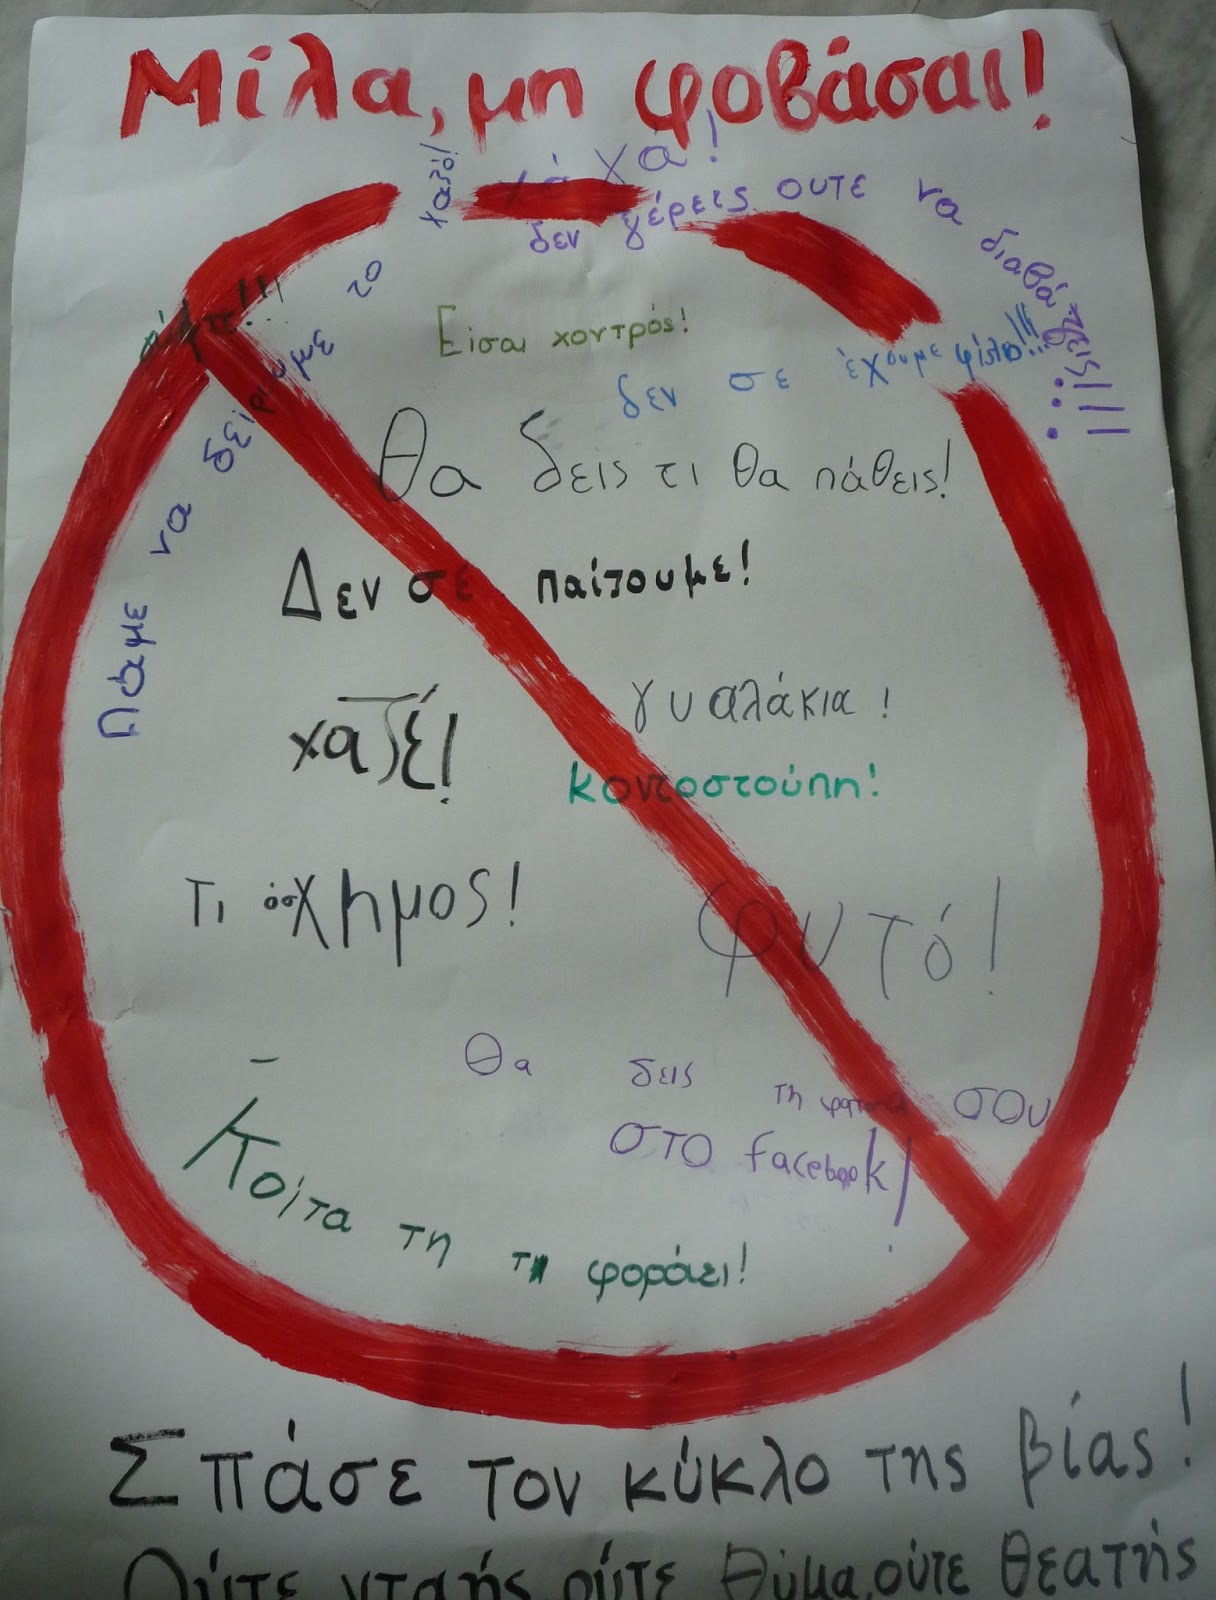 Μίλα, μη φοβάσαι!
χά χά!
δεν ξέρεις ούτε να διαβάζεις!!!
Πάμε να δείρουμε το χαζό!
Είσαι χοντρός!
δεν σε έχουμε φίλο!!!
Θα δεις τι θα πάθεις!
Δεν σε παίζουμε!
χαζέ!
γυαλάκια!
κοντοστούπη!
Τι άσχημος!
φυτό!
Θα δεις τη φάτσα σου
στο facebook!
Κοίτα τη τι φοράει!
Σπάσε τον κύκλο της βίας!
Ούτε νταής, ούτε θύμα, ούτε θεατής